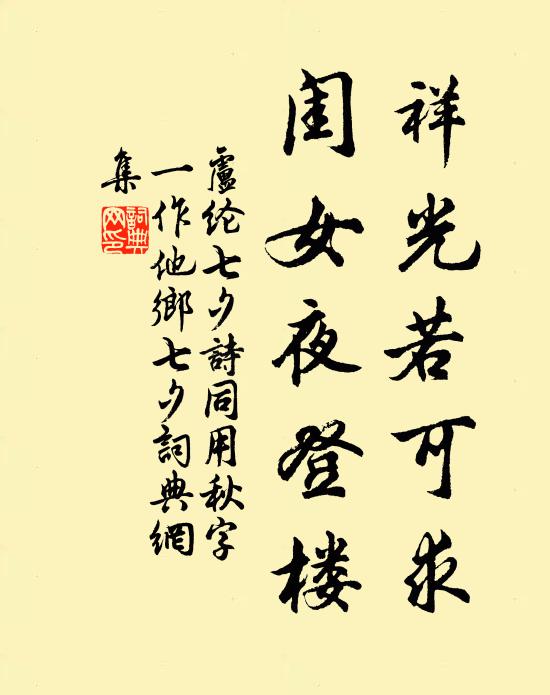 祥光若可求
闺女夜登楼
盧纶七夕詩同用秋字
一作他鄉七夕詞典網
集
詞典
网印